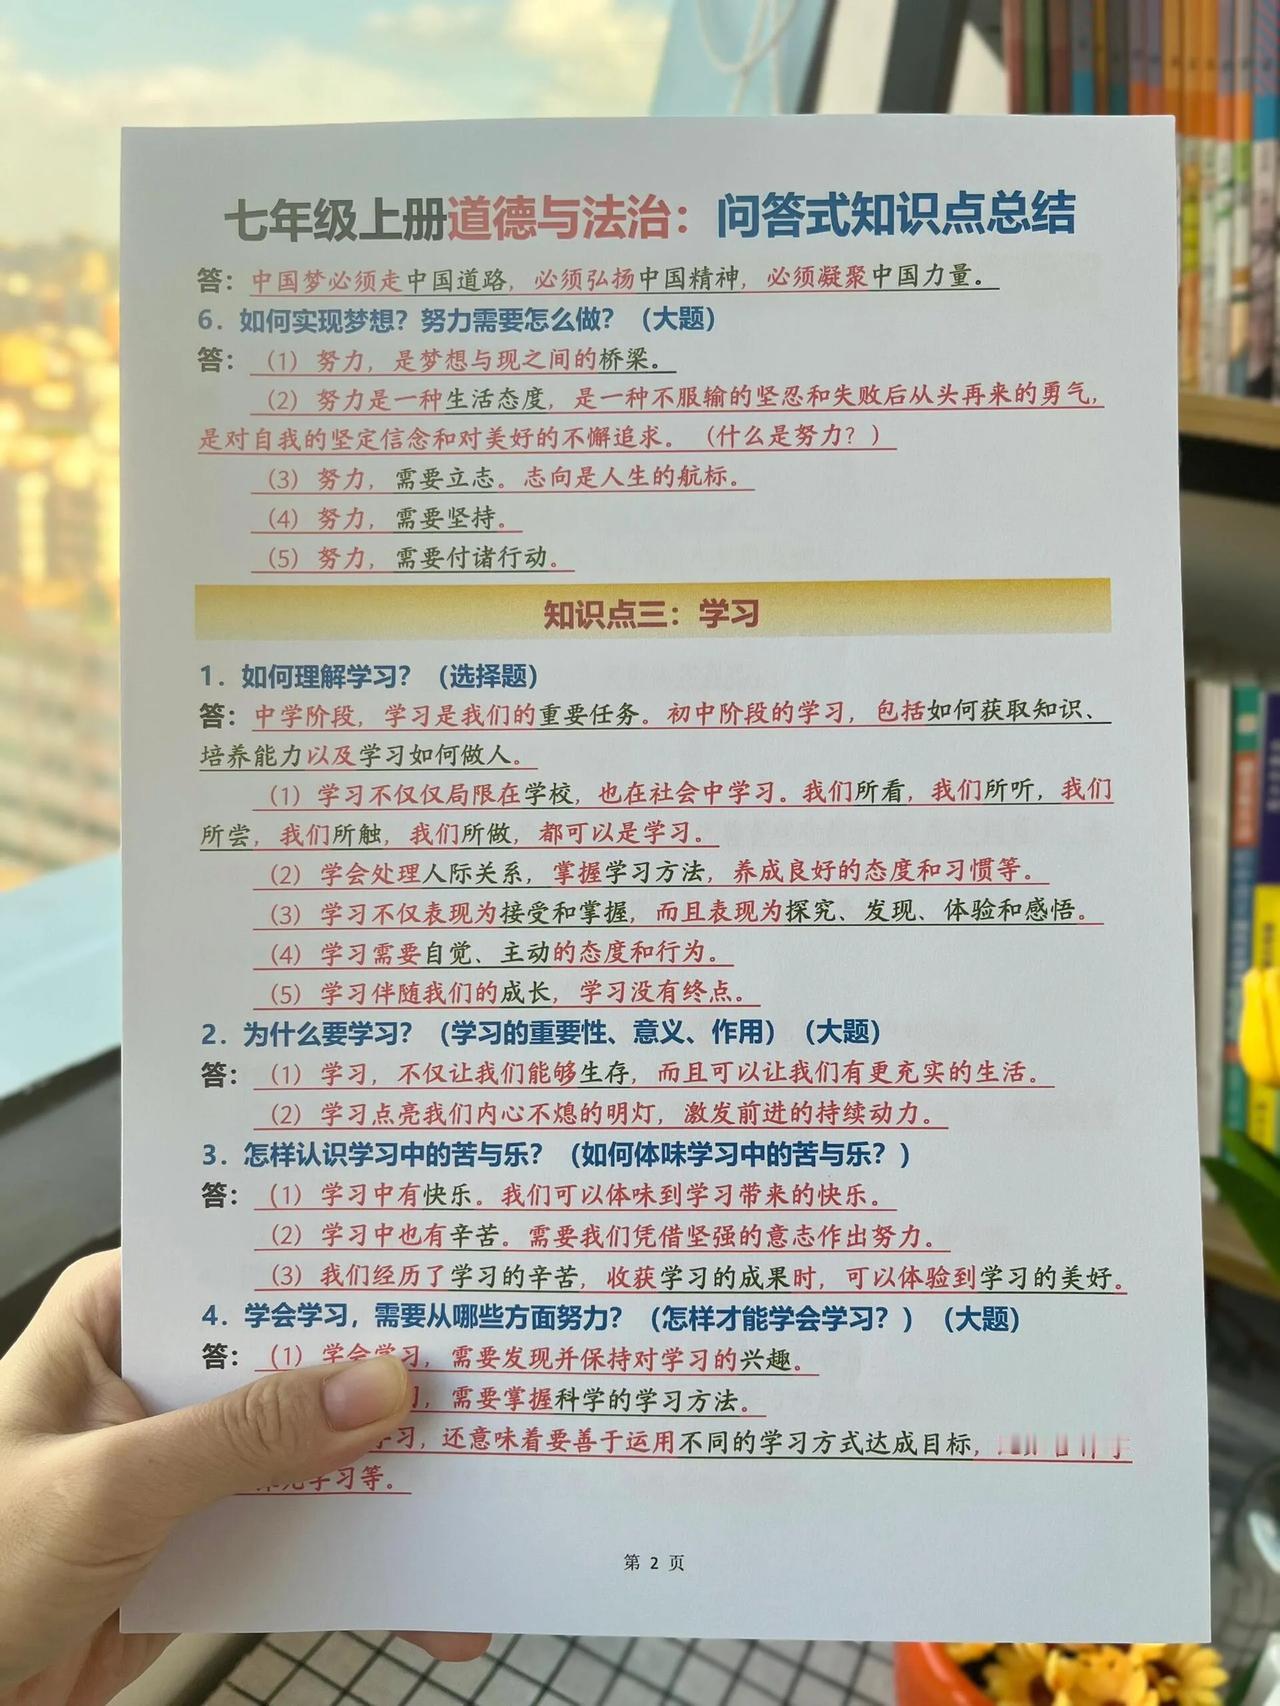 七年级上册道德与法治：问答式知识点总结
答：中国梦必须走中国道路，必须弘扬中国精神，必须凝聚中国力量。
6．如何实现梦想？努力需要怎么做？（大题）
答：（1）努力，是梦想与现之间的桥梁。
（2）努力是一种生活态度，是一种不服输的坚忍和失败后从头再来的勇气，
是对自我的坚定信念和对美好的不懈追求。（什么是努力？）
（3）努力，需要立志。志向是人生的航标。
（4）努力，需要坚持。
（5）努力，需要付诸行动。
知识点三：学习
1．如何理解学习？（选择题）
答：中学阶段，学习是我们的重要任务。初中阶段的学习，包括如何获取知识、
培养能力以及学习如何做人。
（1）学习不仅仅局限在学校，也在社会中学习。我们所看，我们所听，我们
所尝，我们所触，我们所做，都可以是学习。
（2）学会处理人际关系，掌握学习方法，养成良好的态度和习惯等。
（3）学习不仅表现为接受和掌握，而且表现为探究、发现、体验和感悟。
（4）学习需要自觉、主动的态度和行为。
（5）学习伴随我们的成长，学习没有终点。
2．为什么要学习？（学习的重要性、意义、作用）（大题）
答：（1）学习，不仅让我们能够生存，而且可以让我们有更充实的生活。
（2）学习点亮我们内心不熄的明灯，激发前进的持续动力。
3．怎样认识学习中的苦与乐？（如何体味学习中的苦与乐？）
答：（1）学习中有快乐。我们可以体味到学习带来的快乐。
（2）学习中也有辛苦。需要我们凭借坚强的意志作出努力。
（3）我们经历了学习的辛苦，收获学习的成果时，可以体验到学习的美好。
4．学会学习，需要从哪些方面努力？（怎样才能学会学习？）（大题）
答：（1）学会学习，需要发现并保持对学习的兴趣。
，需要掌握科学的学习方法。
习，还意味着要善于运用不同的学习方式达成目标，
学习等。
第 2 页